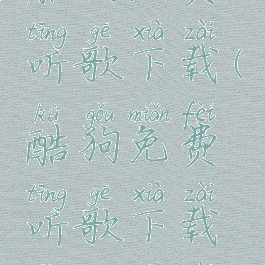 tīng gē xià zài
听歌下载(
kù gǒu miǎn fèi
酷狗免费
tīng gē xià zài
听歌下载